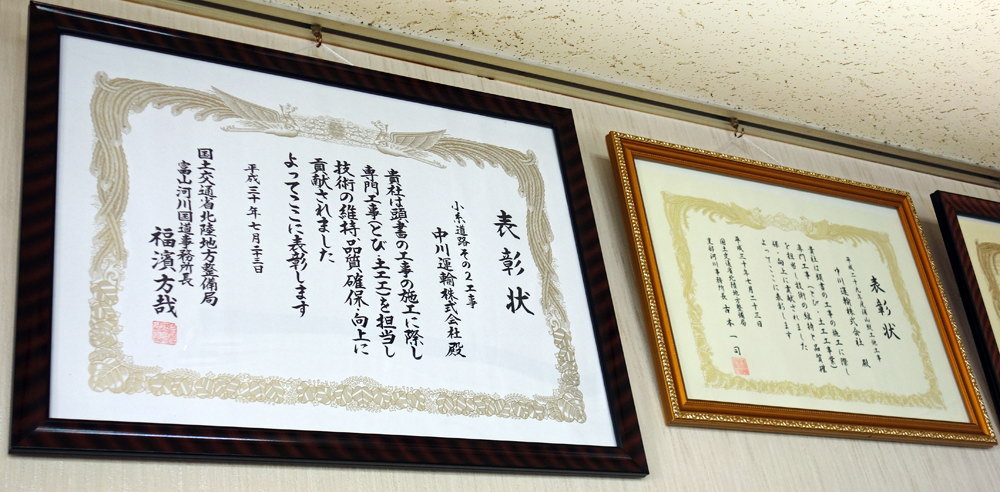 表彰状
小糸道路その2工事
中川運輸株式会社 殿
貴社は頭書の工事の施工に際し
専門工事(とび・土工工)を担当し
技術の維持・品質確保・向上に
貢献されました
よってここに表彰します
平成三十年七月二十三日
国土交通省北陸地方整備局
富山河川国道事務所長
福濱方哉
表彰状
中川運輸株式会社 殿
貴社は頭書の工事の施工に際し
専門工事(とび・土工工事業)
を担当し技術の維持・品質確
保・向上に貢献されました
よってここに表彰します
平成三十年七月二十三日
国土交通省北陸地方整備局
吉本 一司